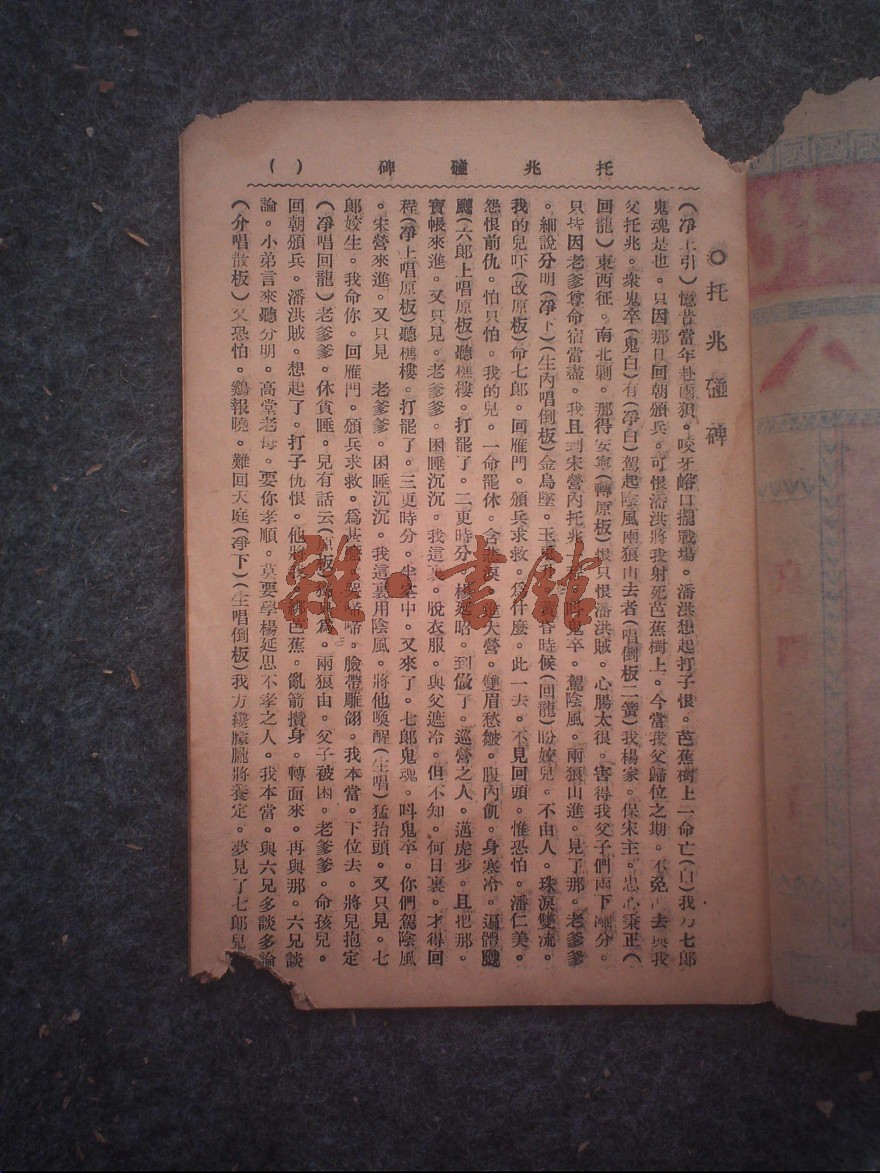 托兆碰碑 ( )
○托兆碰碑
(凈上引)憶昔當年赴兩狼。咬牙峪口擺戰場。潘洪想起打子恨。芭蕉樹上一命亡(白)我乃七郎
鬼魂是也。只因那日回朝頒兵。可恨潘洪將我射死芭蕉樹上。今當我父歸位之期。不免前去與我
父托兆。衆鬼卒(鬼白)有(凈白)駕起陰風兩狼山去者(唱倒板二簧)我楊家。保宋主。忠心秉正(
回龍)東西征。南北剿。那得安寧(轉原板)恨只恨潘洪賊。心腸太很。害得我父子們兩下離分。
只皆因老爹尊命宿當盡。我且到宋營內托兆 鬼卒。駕陰風。兩狼山進。見了那。老爹爹
。細說分明(凈下)(生內唱倒板)金烏墜。玉 黃昏時候(回龍)盼姣兒。不由人。珠淚雙流。
我的兒吓(改原板)命七郎。回雁門。頒兵求救。爲什麼。此一去。不見回頭。惟恐怕。潘仁美。
怨恨前仇。怕只怕。我的兒。一命罷休。含悲淚。進大營。雙眉愁皺。腹內飢。身寒冷。逼體颼
颼(六郎上唱原板)聽樵樓。打罷了。二更時分。楊延昭。到做了。巡營之人。邁虎步。且把那。
寶帳來進。又只見。老爹爹。困睡沉沉。我這裏。脫衣服。與父遮冷。但不知。何日裏。才得回
程(凈上唱原板)聽樵樓。打罷了。三更時分。半空中。又來了。七郎鬼魂。叫鬼卒。你們駕陰風
。宋營來進。又只見 老爹爹。困睡沉沉。我這裏用陰風。將他喚醒(生唱)猛抬頭。又只見。七
郎姣生。我命你。回雁門。頒兵求救。爲甚麼。哭啼啼。臉帶雕翎。我本當。下位去。將兒抱定
(凈唱回龍)老爹爹。休貪睡。兒有話云(原板) 兩狼山。父子被困。老爹爹。命孩兒。
回朝頒兵。潘洪賊。想起了。打子仇恨。他將我。綁芭蕉。亂箭攢身。轉面來。再與那。六兄談
論。小弟言來聽分明。高堂老母。要你孝順。莫要學楊延思不孝之人。我本當。與六兄多談多論
(介唱散板)又恐怕。鷄報曉。難回天庭(凈下)(生唱倒板)我方纔朦朧將養定。夢見了七郎兒
雜·書館